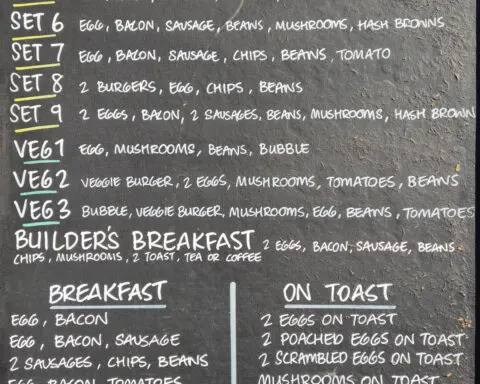 SET 6 EGG, BACON, SAUSAGE, BEANS, MUSHROOMS, HASH BROWNS
SET 7 EGG, BACON, SAUSAGE, CHIPS, BEANS, TOMATO
SET 8 2 BURGERS, EGG, CHIPS, BEANS
SET 9 2 EGGS, BACON, 2 SAUSAGES, BEANS, MUSHROOMS, HASH BROWN
VEG 1 EGG, MUSHROOMS, BEANS, BUBBLE
VEG 2 VEGGIE BURGER, 2 EGGS, MUSHROOMS, TOMATOES, BEANS
VEG 3 BUBBLE, VEGGIE BURGER, MUSHROOMS, EGG, BEANS, TOMATOES
BUILDER'S BREAKFAST 2 EGGS, BACON, SAUSAGE, BEANS
CHIPS, MUSHROOMS, 2 TOAST, TEA OR COFFEE
BREAKFAST
EGG, BACON
EGG, BACON, SAUSAGE
2 SAUSAGES, CHIPS, BEANS
EGG, BACON, TOMATOES
ON TOAST
2 EGGS ON TOAST
2 POACHED EGGS ON TOAST
2 SCRAMBLED EGGS ON TOAST
MUSHROOMS ON TOAST